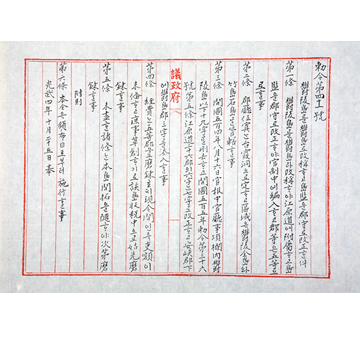 勅令第四十一號
鬱陵島를鬱島로改稱ᄒᆞ고島監을郡守로改正ᄒᆞᆫ件
第一條 鬱陵島를鬱島라改稱ᄒᆞ야江原道에附屬ᄒᆞ고島
監을郡守로改正ᄒᆞ야官制中에編入ᄒᆞ고郡等은五等으
로ᄒᆞᆯ事
第二條 郡廳位置ᄂᆞᆫ台霞洞으로定ᄒᆞ고區域은鬱陵全島와
竹島石島를管轄ᄒᆞᆯ事
第三條 開國五百四年八月十六日官報中官廳事項欄內鬱
陵島以下十九字를刪去ᄒᆞ고開國五百五年勅令第三十六
號第五條江原道二十六郡의六字ᄂᆞᆫ七字로改正ᄒᆞ고安峽郡下
議政府
에鬱島郡三字를添入ᄒᆞᆯ事
第四條 經費ᄂᆞᆫ五等郡으로磨鍊호ᄃᆡ現今間인즉吏額이
未備ᄒᆞ고庶事草創ᄒᆞ기로該島收稅中으로姑先磨
鍊ᄒᆞᆯ事
第五條 未盡ᄒᆞᆫ諸條ᄂᆞᆫ本島開拓을隨ᄒᆞ야次第磨
鍊ᄒᆞᆯ事
附則
第六條 本令은頒布日로부터施行ᄒᆞᆯ事
光武四年十月二十五日奉